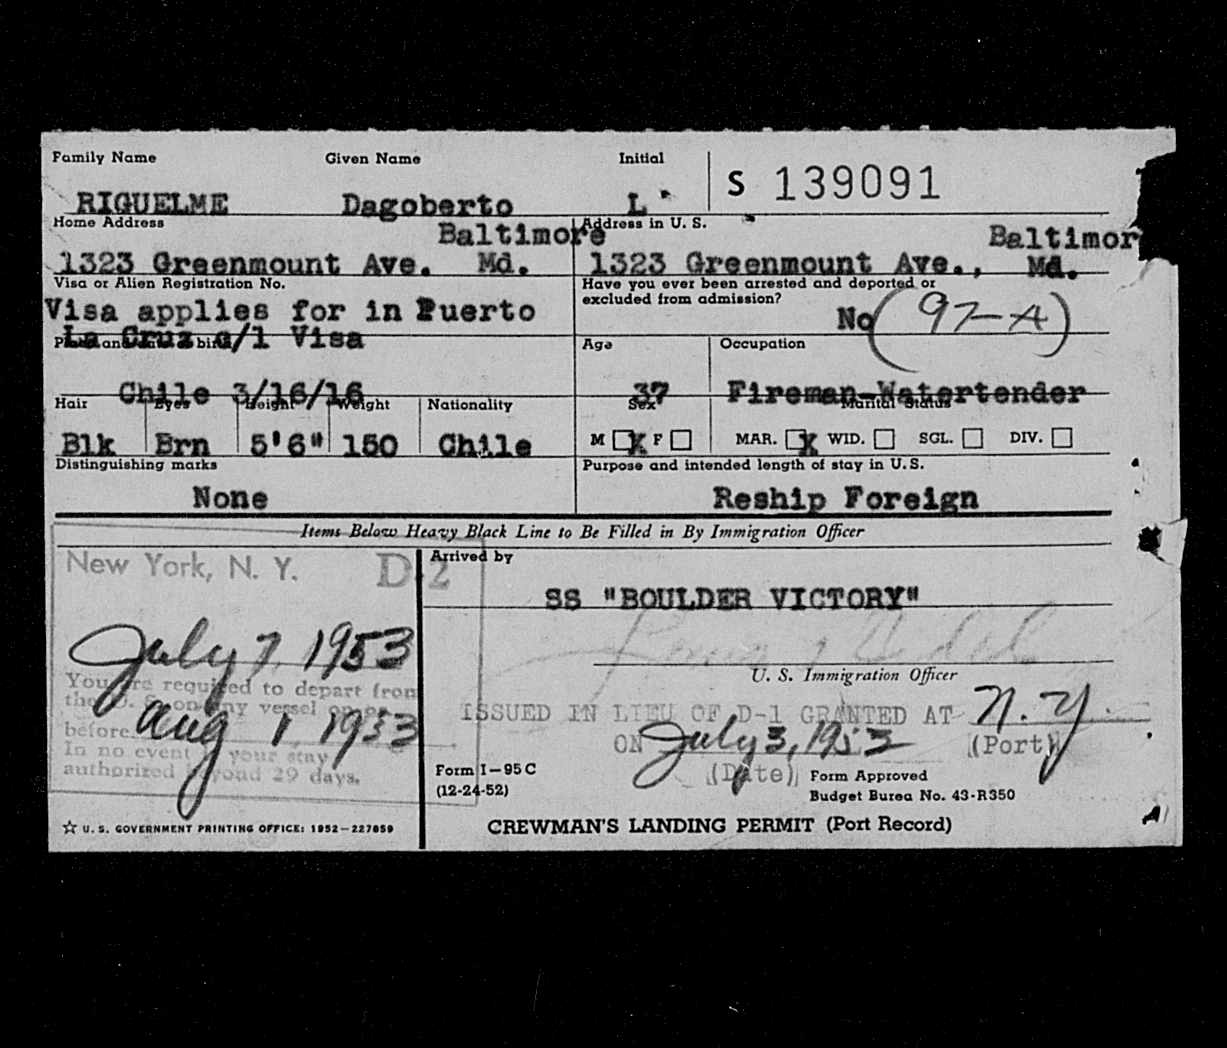 Family Name Given Name Initial
S 139091
RIQUELME Dagoberto L
Home Address Address in U. S.
Baltimore Baltimor
1323 Greenmount Ave. Md. 1323 Greenmount Ave., Md.
Visa or Alien Registration No. Have you ever been arrested and deported or
excluded from admission?
Visa applies for in Puerto No (97-A)
La Cruz c/l Visa
Age Occupation
Chile 3/16/16 37 Fireman-Watertender
Hair Eyes Height Weight Nationality Sex Marital Status
Blk Brn 5'6" 150 Chile M X F MAR. X WID. SGL. DIV.
Distinguishing marks Purpose and intended length of stay in U.S.
None Reship Foreign
Items Below Heavy Black Line to Be Filled in By Immigration Officer
New York, N. Y. D-2
Arrived by
SS "BOULDER VICTORY"
July 7, 1953
U. S. Immigration Officer
You are required to depart from
the U. S. on any vessel on or
before Aug 1, 1953
In no event is your stay
authorized beyond 29 days.
ISSUED IN LIEU OF D-1 GRANTED AT N. Y.
ON July 3, 1953 (Port)
(Date)
Form I-95C
(12-24-52)
Form Approved
Budget Bureau No. 43-R350
☆ U. S. GOVERNMENT PRINTING OFFICE: 1952-227859
CREWMAN'S LANDING PERMIT (Port Record)